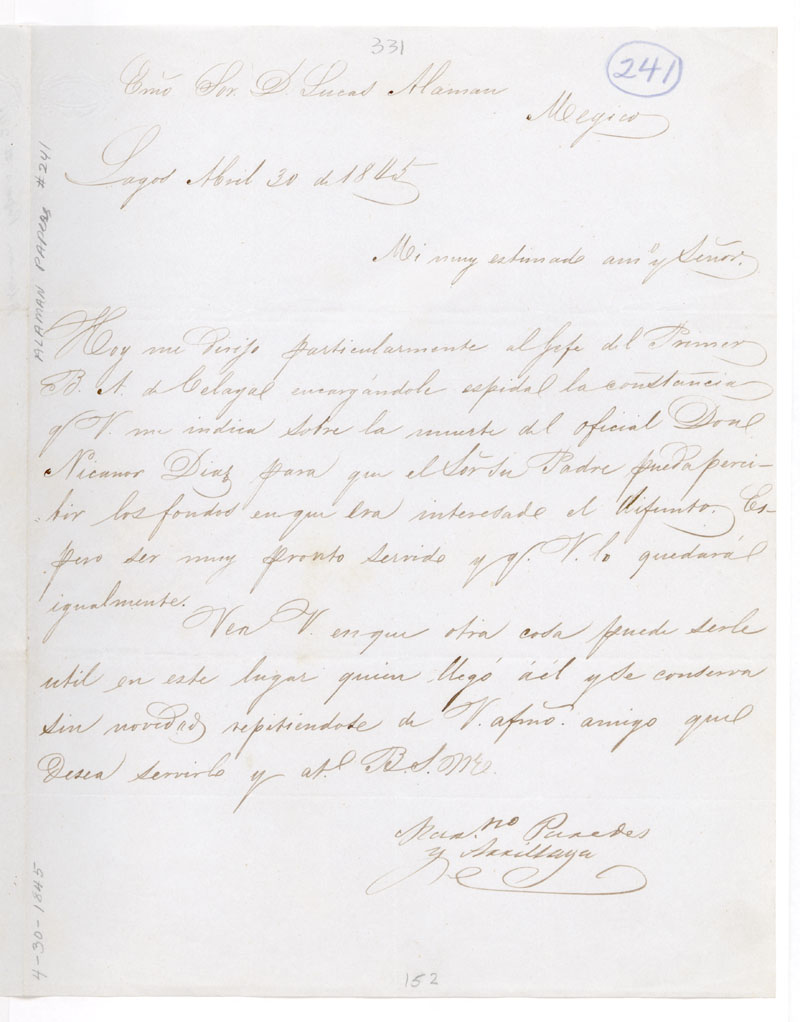 331
241
Exmo Sor. D. Lucas Alaman
Megico
Lagos Abril 30 de 1845
Mi muy estimado amo. y Señor.
Hoy me dirijo particularmente al Jefe del Primer
B. A. de Celaya encargándole espida la constancia
q V. me indica sobre la muerte del oficial Don
Nicanor Diaz para que el Sor. su Padre pueda perci-
bir los fondos en que era interesado el difunto. Es-
pero ser muy pronto servido y q. V. lo quedará
igualmente.
Vea V. en que otra cosa puede serle
util en este lugar quien llegó á él y se conserva
sin novedad repitiendose de V. afmo. amigo que
desea servirle y at. B.S.M.
Marno. Paredes
y Arrillaga
152
ALAMAN PAPERS #241
4-30-1845